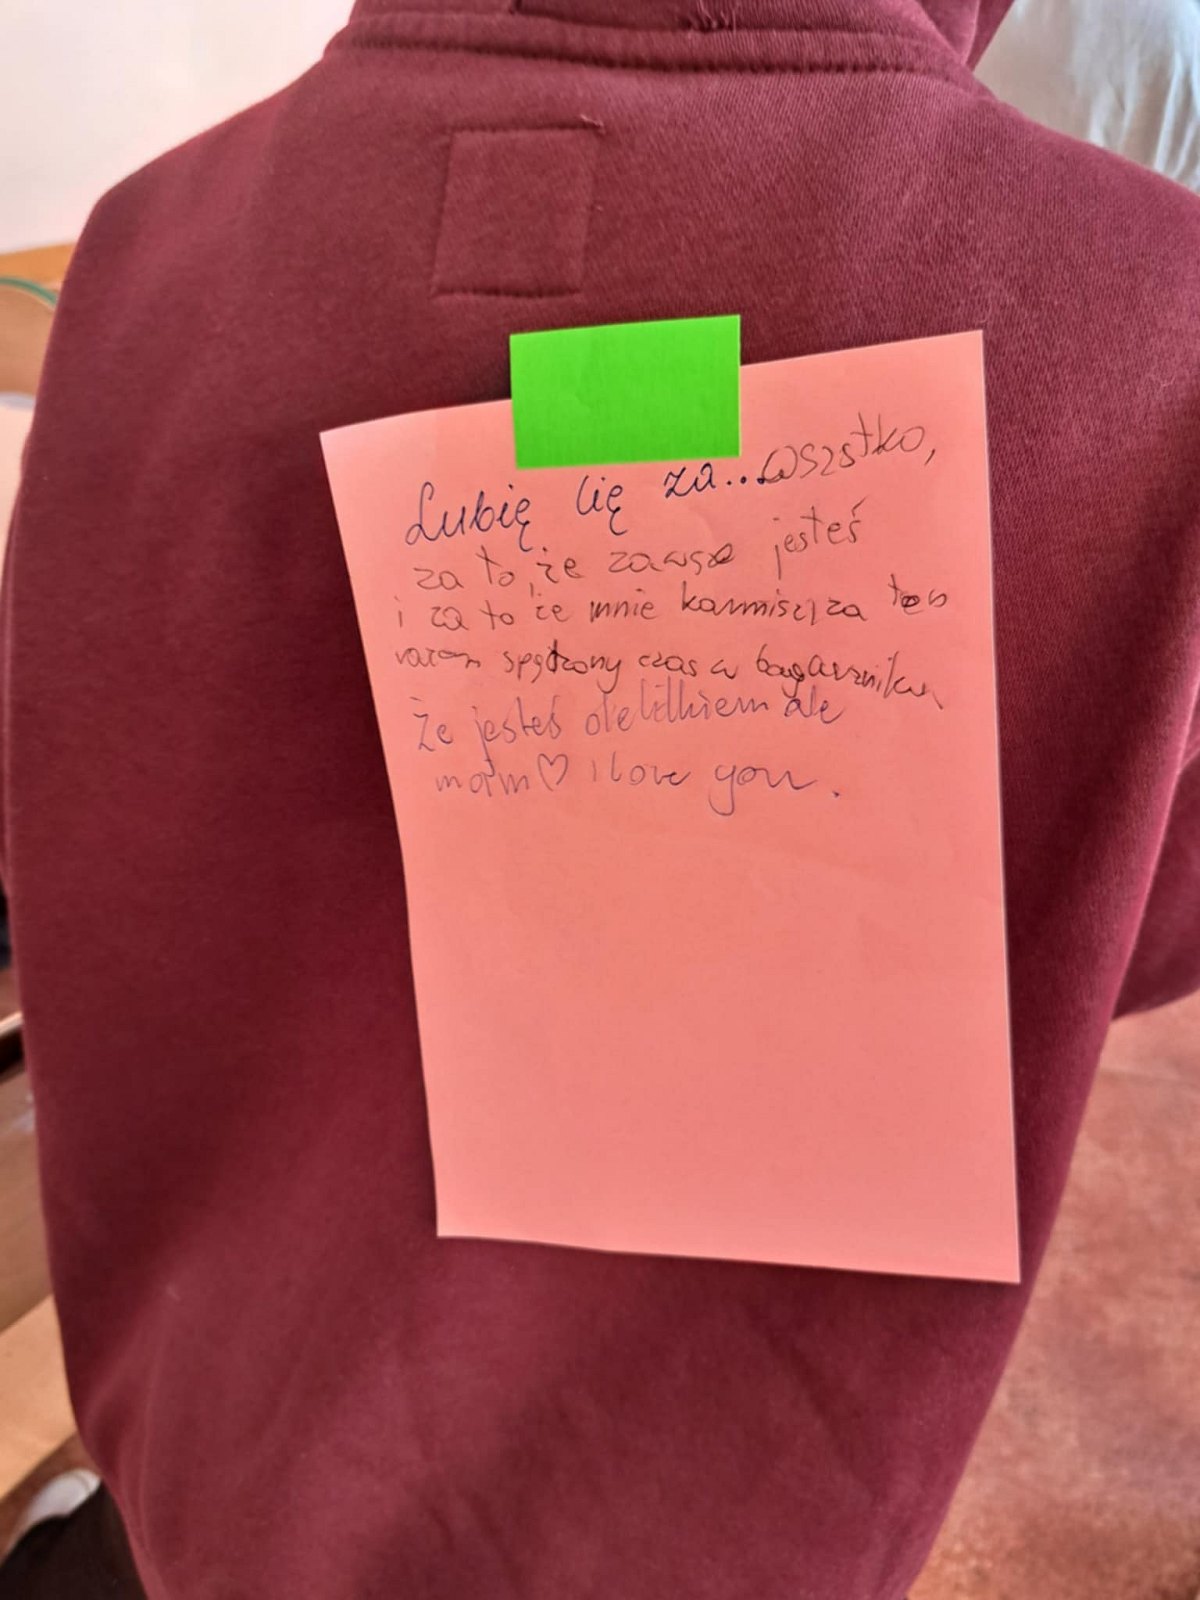 Lubię Cię za...wszstko,
za to, że zawsze jesteś
i za to że mnie karmisz, za ten
razem spędzony czas w bagarzniku
Że jesteś ale
mam♡ i love you.